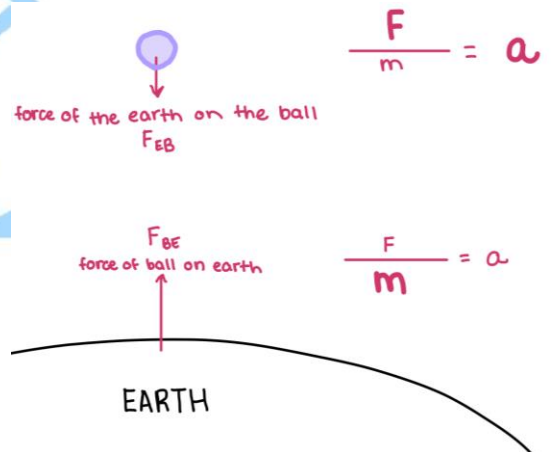 F
m
= a
force of the earth on the ball
F_EB
F_BE
force of ball on earth
F
m
= a
EARTH